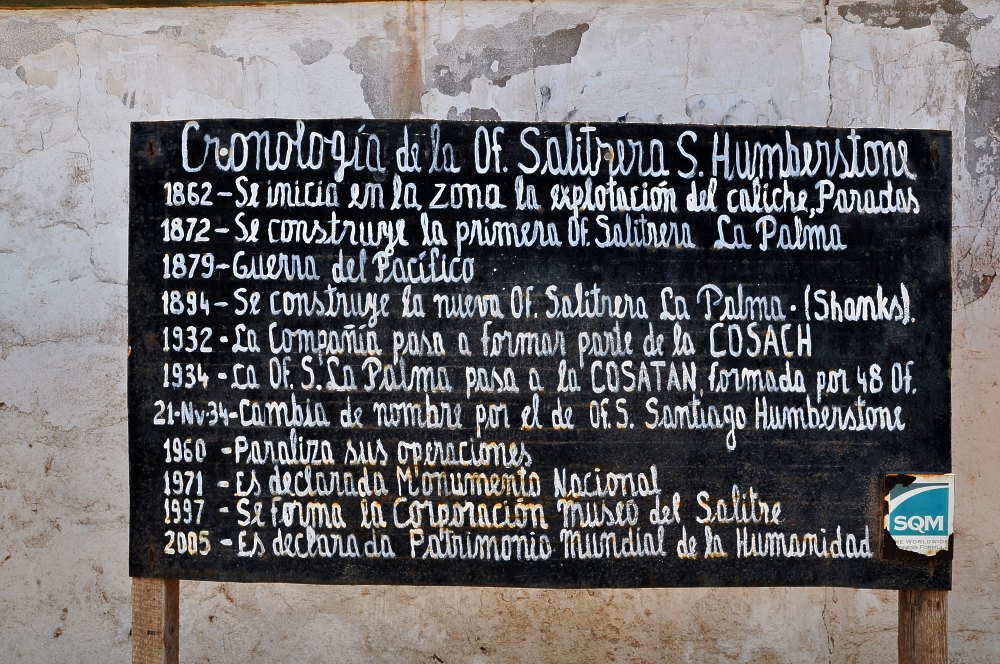 Cronología de la Of. Salitrera S. Humberstone
1862-Se inicia en la zona la explotación del caliche, Paradas
1872-Se construye la primera Of. Salitrera La Palma
1879-Guerra del Pacífico
1894-Se construye la nueva Of. Salitrera La Palma. (Shanks).
1932-La Compañía pasa a formar parte de la COSACH
1934-La Of. S. La Palma pasa a la COSATAN, formada por 48 Of.
21-Nv-34-Cambia de nombre por el de Of. S. Santiago Humberstone
1960 -Paraliza sus operaciones
1971 -Es declarada Monumento Nacional
1997 -Se forma la Corporación museo del Salitre
2005 -Es declarada Patrimonio Mundial de la Humanidad
SQM
THE WORLDWIDE
BUSINESS FORMULA